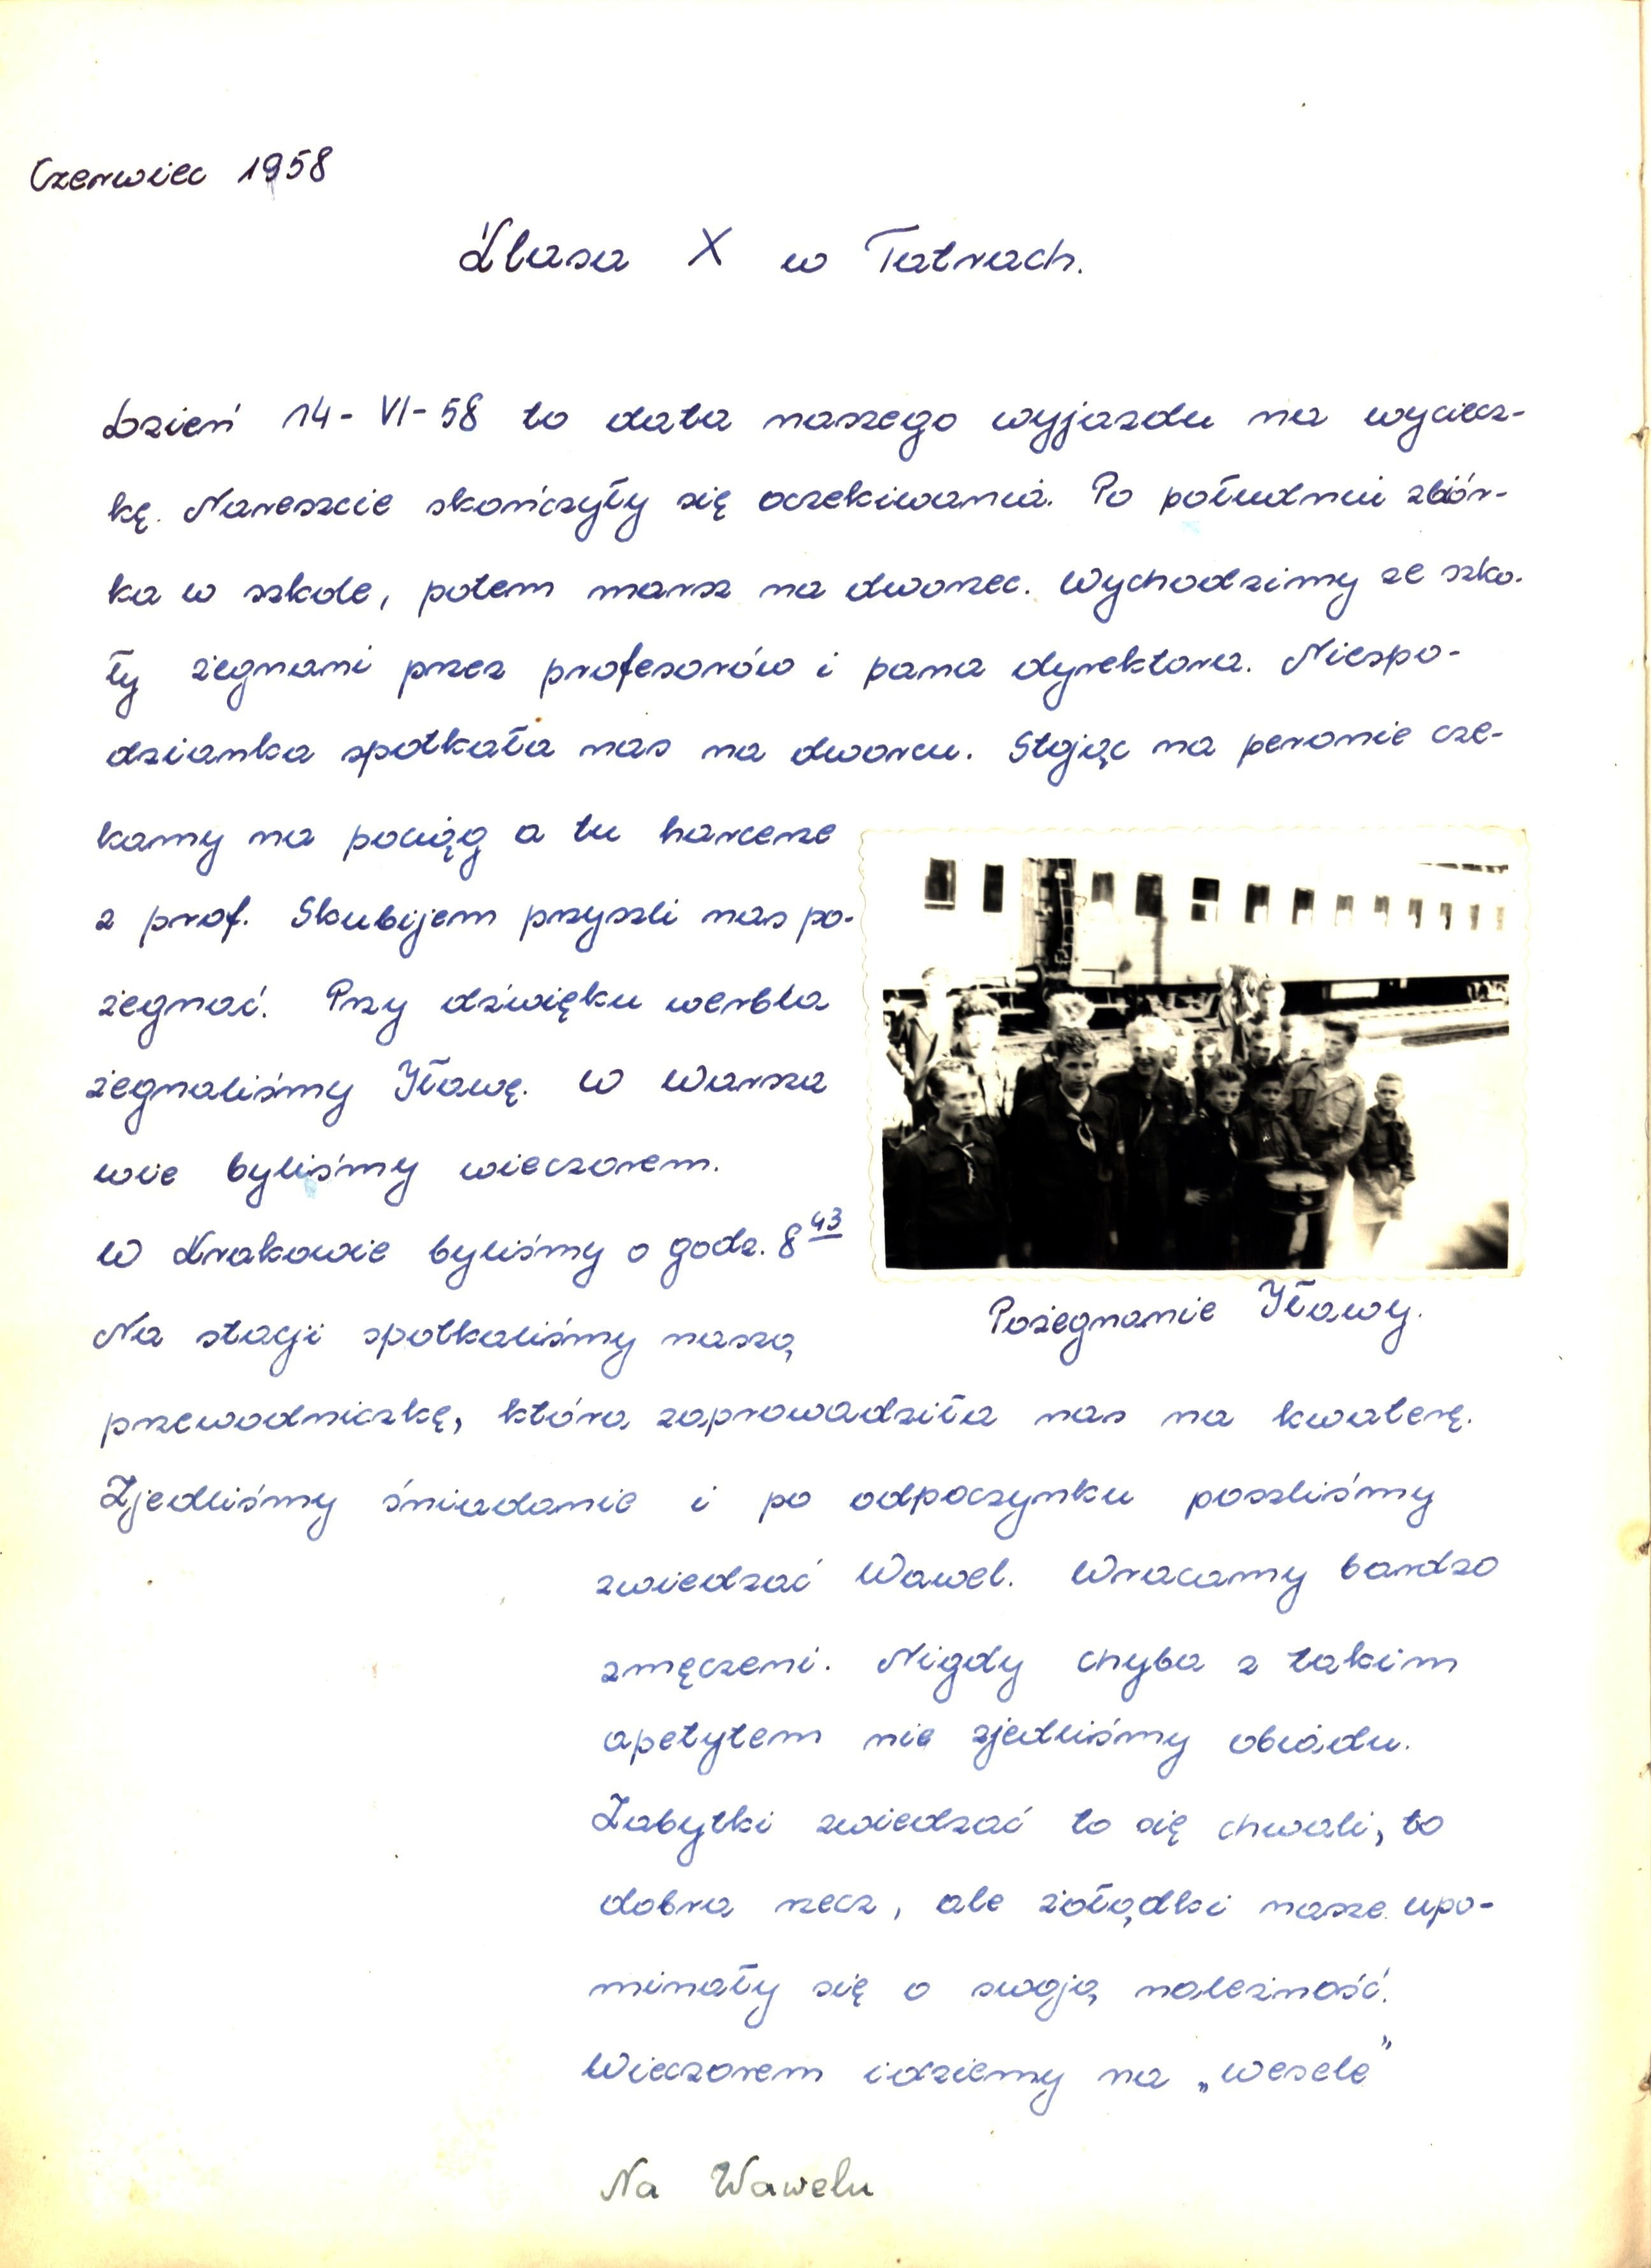 Czerwiec 1958
Klasa X w Tatrach.
Dzień 14-VI-58 to data naszego wyjazdu na wyciecz-
kę. Nareszcie skończyły się oczekiwania. Po południu zbiór-
ka w szkole, potem marsz na dworzec. Wychodzimy ze szko-
ły żegnani przez profesorów i pana dyrektora. Niespo-
dzianka spotkała nas na dworcu. Stojąc na peronie cze-
kamy na pociąg a tu harcerze
z prof. Skubijem przyszli nas po-
żegnać. Przy dźwięku werbla
żegnaliśmy Iławę. W Warsza
wie byliśmy wieczorem.
W Krakowie byliśmy o godz. 8 43
Na stacji spotkaliśmy naszą
Pożegnanie Iławy.
przewodniczkę, która zaprowadziła nas na kwaterę.
Zjedliśmy śniadanie i po odpoczynku poszliśmy
zwiedzać Wawel. Wracamy bardzo
zmęczeni. Nigdy chyba z takim
apetytem nie zjedliśmy obiadu.
Zabytki zwiedzać to się chwali, to
dobra rzecz, ale żołądki nasze upo-
minały się o swoją należność.
Wieczorem idziemy na „Wesele"
Na Wawelu